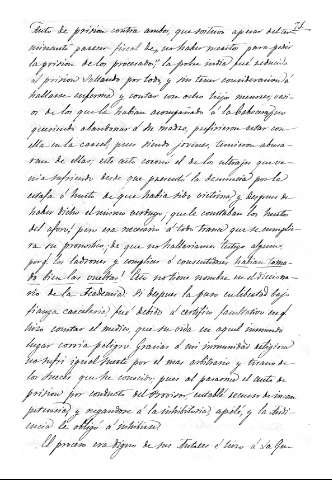 71
Auto de prision contra ambos, que sostuvo apesar del en
minante parecer fiscal de, no haber meritos para pedir
la prision de los procesados; la pobre india fué reducida
á prision saltando por todo y sin tener consideracion á
hallarse enferma y contar con ocho hijos menores, vari
os de los que la habian acompañado á la
queriendo abandonar á su madre, prefirieron estar con
ella en la carcel, pues siendo jóvenes, temieron abusa-
ran de ellas; este auto coronó el de los ultrajes que ve-
nia sufriendo desde que presentó la denuncia por la
estafa ó hurto de que habia sido victima y despues de
haber dicho el mismo verdugo, que le constaban los hurtos
del aforo, pero era necesario á todo trance que se cumplie-
ra su pronostico, de que no hallariamos testigo alguno,
porq. los ladrones y complices ó consentidores habian toma-
do bien las vueltas! Esto no tiene nombre en el dicciona-
rio de la Academia. Si despues la puso en libertad bajo
fianza carcelaria, fué debido á certificn facultativa en q.
hizo constar el medico, que su vida en aquel inmundo
lugar corria peligro. Gracias á mi inmunidad religiosa
no sufrí igual suerte por el mas arbitrario y tirano de
los Jueces que he conocido, pues al pasarme el auto de
prision por conducto del Provisor, entablé recurso de incom
petencia, y negandose á la inhibitoria, apelé, y la Audi-
encia le obligó á inhibirse.
El proceso era digno de sus Autores ó sea á la Que